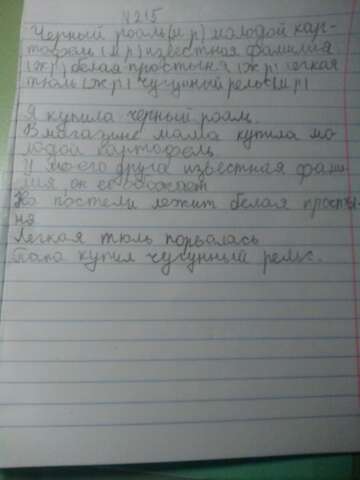 №215
Черный рояль (м р) молодой кар-
тофель (м р) известная фамилия
(ж р) белая простыня (ж р) легкая
тюль (ж р) чугунный рельс (м р)
Я купила черный рояль.
В магазине мама купила мо-
лодой картофель
У моего друга известная фами-
лия, он
На постели лежит белая просты-
ня
Легкая тюль порвалась
Папа купил чугунный рельс.